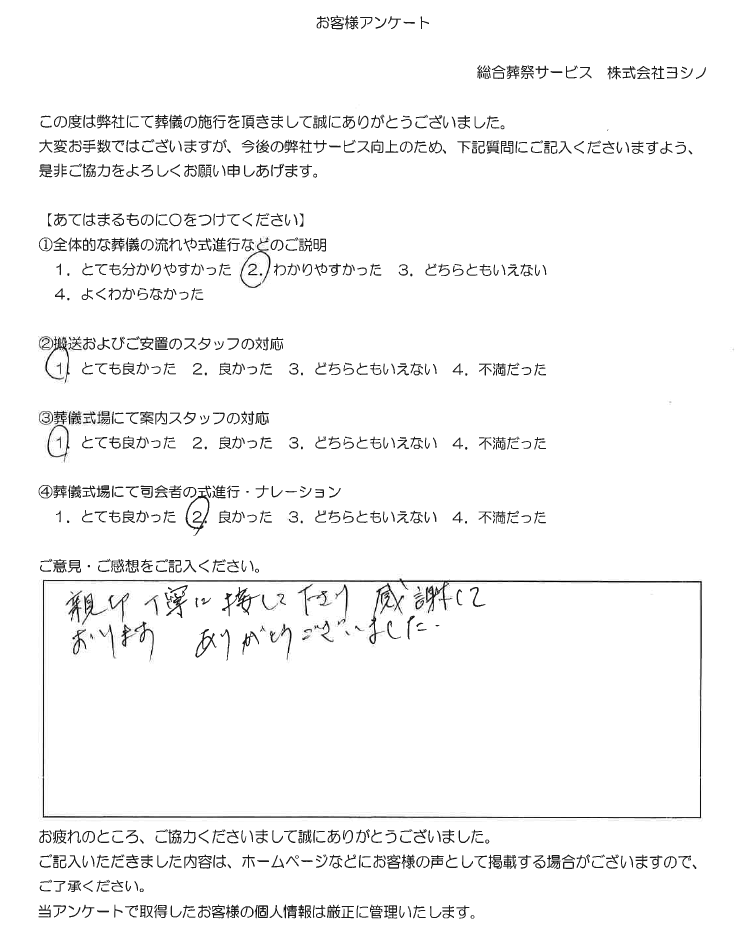 お客様アンケート
総合葬祭サービス　株式会社ヨシノ
この度は弊社にて葬儀の施行を頂きまして誠にありがとうございました。
大変お手数ではございますが、今後の弊社サービス向上のため、下記質問にご記入くださいますよう、
是非ご協力をよろしくお願い申しあげます。
【あてはまるものに〇をつけてください】
①全体的な葬儀の流れや式進行などのご説明
１．とても分かりやすかった　２．わかりやすかった　３．どちらともいえない
４．よくわからなかった
②搬送およびご安置のスタッフの対応
１．とても良かった　２．良かった　３．どちらともいえない　４．不満だった
③葬儀式場にて案内スタッフの対応
１．とても良かった　２．良かった　３．どちらともいえない　４．不満だった
④葬儀式場にて司会者の式進行・ナレーション
１．とても良かった　２．良かった　３．どちらともいえない　４．不満だった
ご意見・ご感想をご記入ください。
親切 丁寧に 接して 下さり 感謝して
おります　ありがとうございました.
お疲れのところ、ご協力くださいまして誠にありがとうございました。
ご記入いただきました内容は、ホームページなどにお客様の声として掲載する場合がございますので、
ご了承ください。
当アンケートで取得したお客様の個人情報は厳正に管理いたします。